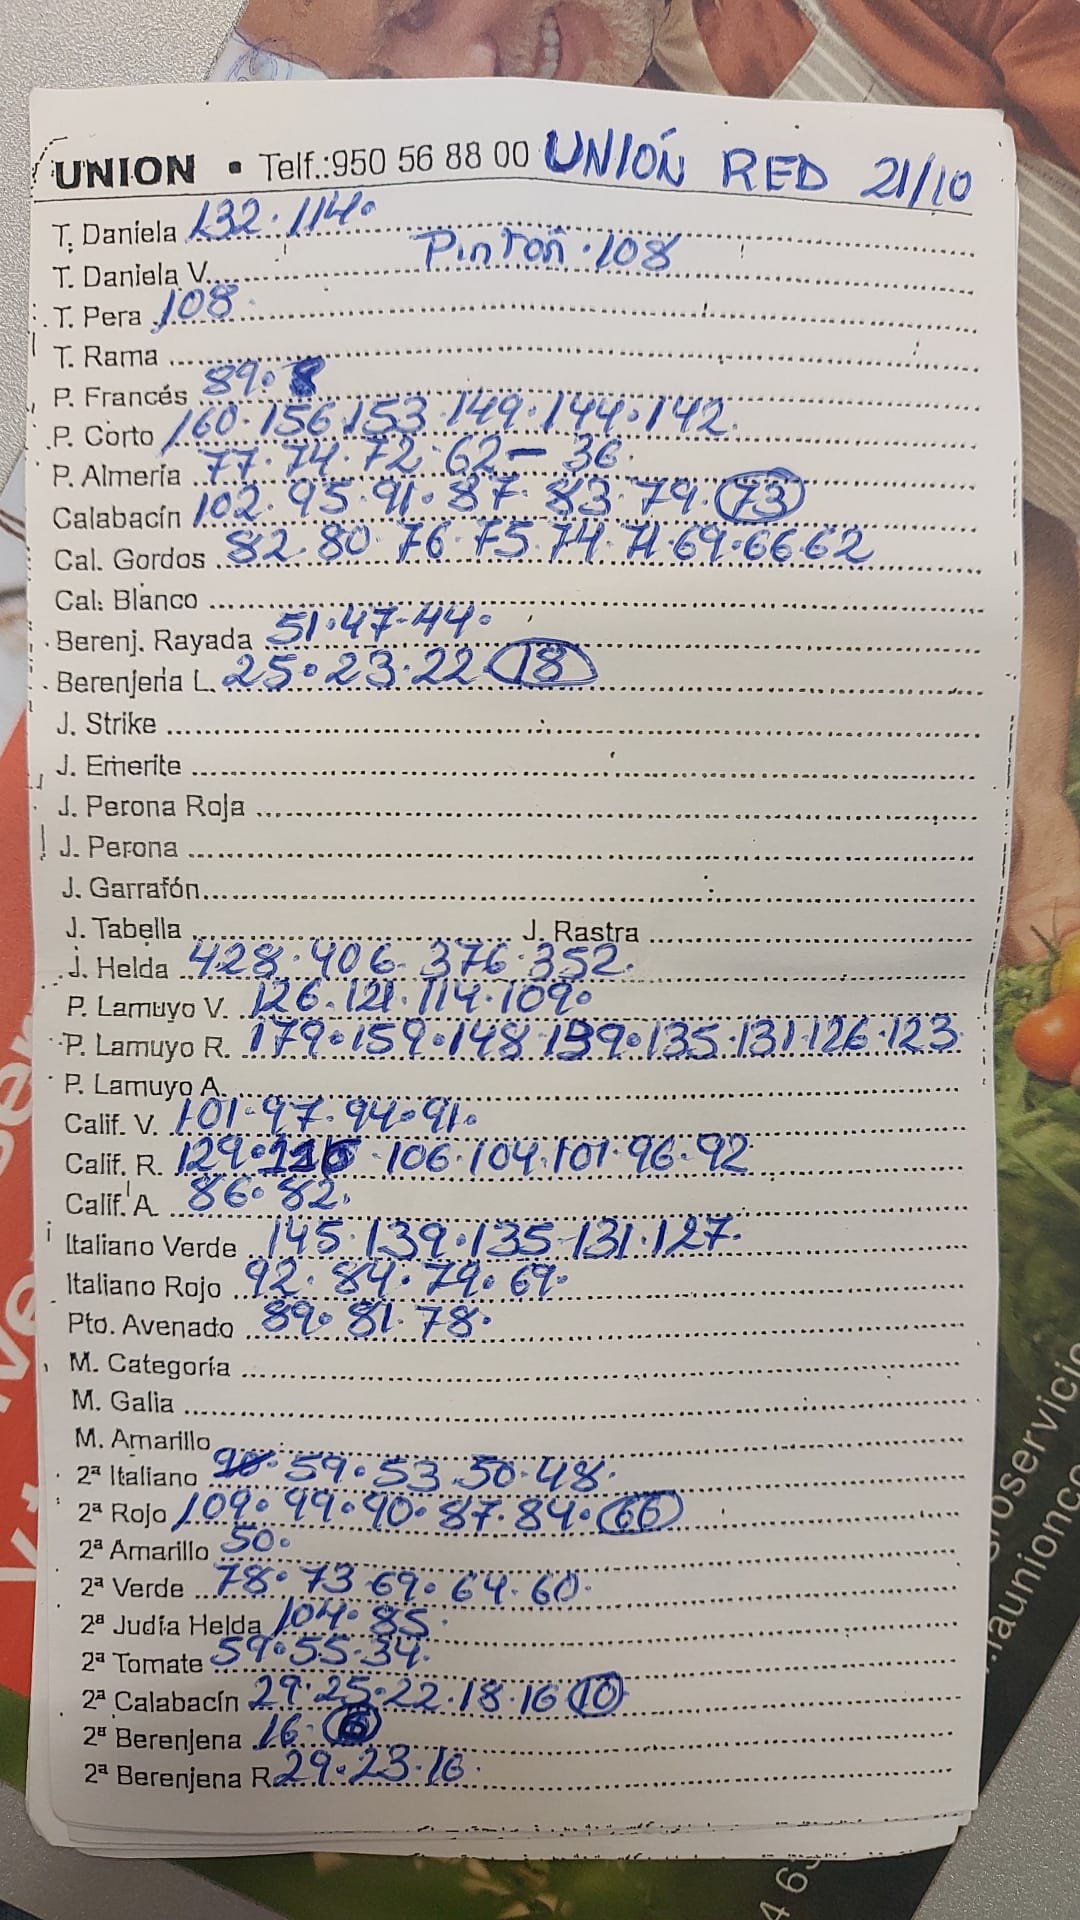 UNION • Telf.:950 56 88 00 UNIÓN RED 21/10
T. Daniela 132. 114.
T. Daniela V. Pintón. 108
T. Pera 108.
T. Rama
P. Francés 89.
P. Corto 160. 156. 153. 149. 144. 142.
P. Almería 77. 74. 72. 62 — 36.
Calabacín 102. 95. 91. 87. 83. 79. 73
Cal. Gordos 82. 80. 76. 75. 74. 71. 69. 66. 62
Cal. Blanco
Berenj. Rayada 51. 47. 44.
Berenjena L. 25. 23. 22 18
J. Strike
J. Emerite
J. Perona Roja
J. Perona
J. Garrafón
J. Tabella J. Rastra
J. Helda 428. 406. 376. 352.
P. Lamuyo V. 126. 121. 114. 109.
P. Lamuyo R. 179. 159. 148. 139. 135. 131. 126. 123
P. Lamuyo A.
Calif. V. 101. 97. 94. 91.
Calif. R. 129. 106. 104. 101. 96. 92
Calif. A 86. 82.
Italiano Verde 145. 139. 135. 131. 127.
Italiano Rojo 92. 84. 79. 69.
Pto. Avenado 89. 81. 78.
M. Categoría
M. Galia
M. Amarillo
2ª Italiano 59. 53. 50. 48.
2ª Rojo 109. 99. 90. 87. 84. 66
2ª Amarillo 50.
2ª Verde 78. 73 69. 64. 60.
2ª Judía Helda 104. 85.
2ª Tomate 59. 55. 34.
2ª Calabacín 29. 25. 22. 18. 16 10
2ª Berenjena 16.
2ª Berenjena R 29. 23. 16.